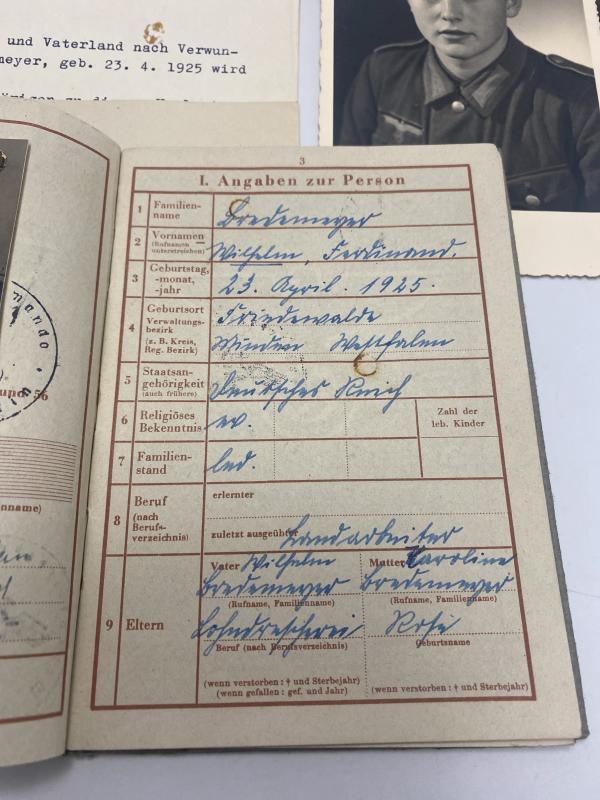 und Vaterland nach Verwun-
meyer, geb. 23. 4. 1925 wird
3
I. Angaben zur Person
1 Familien-
name
Bredemeyer
2 Vornamen
(Rufnamen
unterstreichen)
Wilhelm, Ferdinand.
3 Geburtstag,
-monat,
-jahr
23. April. 1925.
4 Geburtsort
Verwaltungs-
bezirk
(z. B. Kreis,
Reg. Bezirk)
Friedewalde
Minden Westfalen
5 Staatsan-
gehörigkeit
(auch frühere)
Deutsches Reich
6 Religiöses
Bekenntnis
ev.
Zahl der
leb. Kinder
7 Familien-
stand
led.
8 Beruf
(nach
Berufs-
verzeichnis)
erlernter
zuletzt ausgeübter Landarbeiter
9 Eltern
Vater Wilhelm
Bredemeyer
(Rufname, Familienname)
Lohndrescherei
Beruf (nach Berufsverzeichnis)
(wenn verstorben: † und Sterbejahr)
(wenn gefallen: gef. und Jahr)
Mutter Karoline
Bredemeyer
(Rufname, Familienname)
Rose
Geburtsname
(wenn verstorben: † und Sterbejahr)